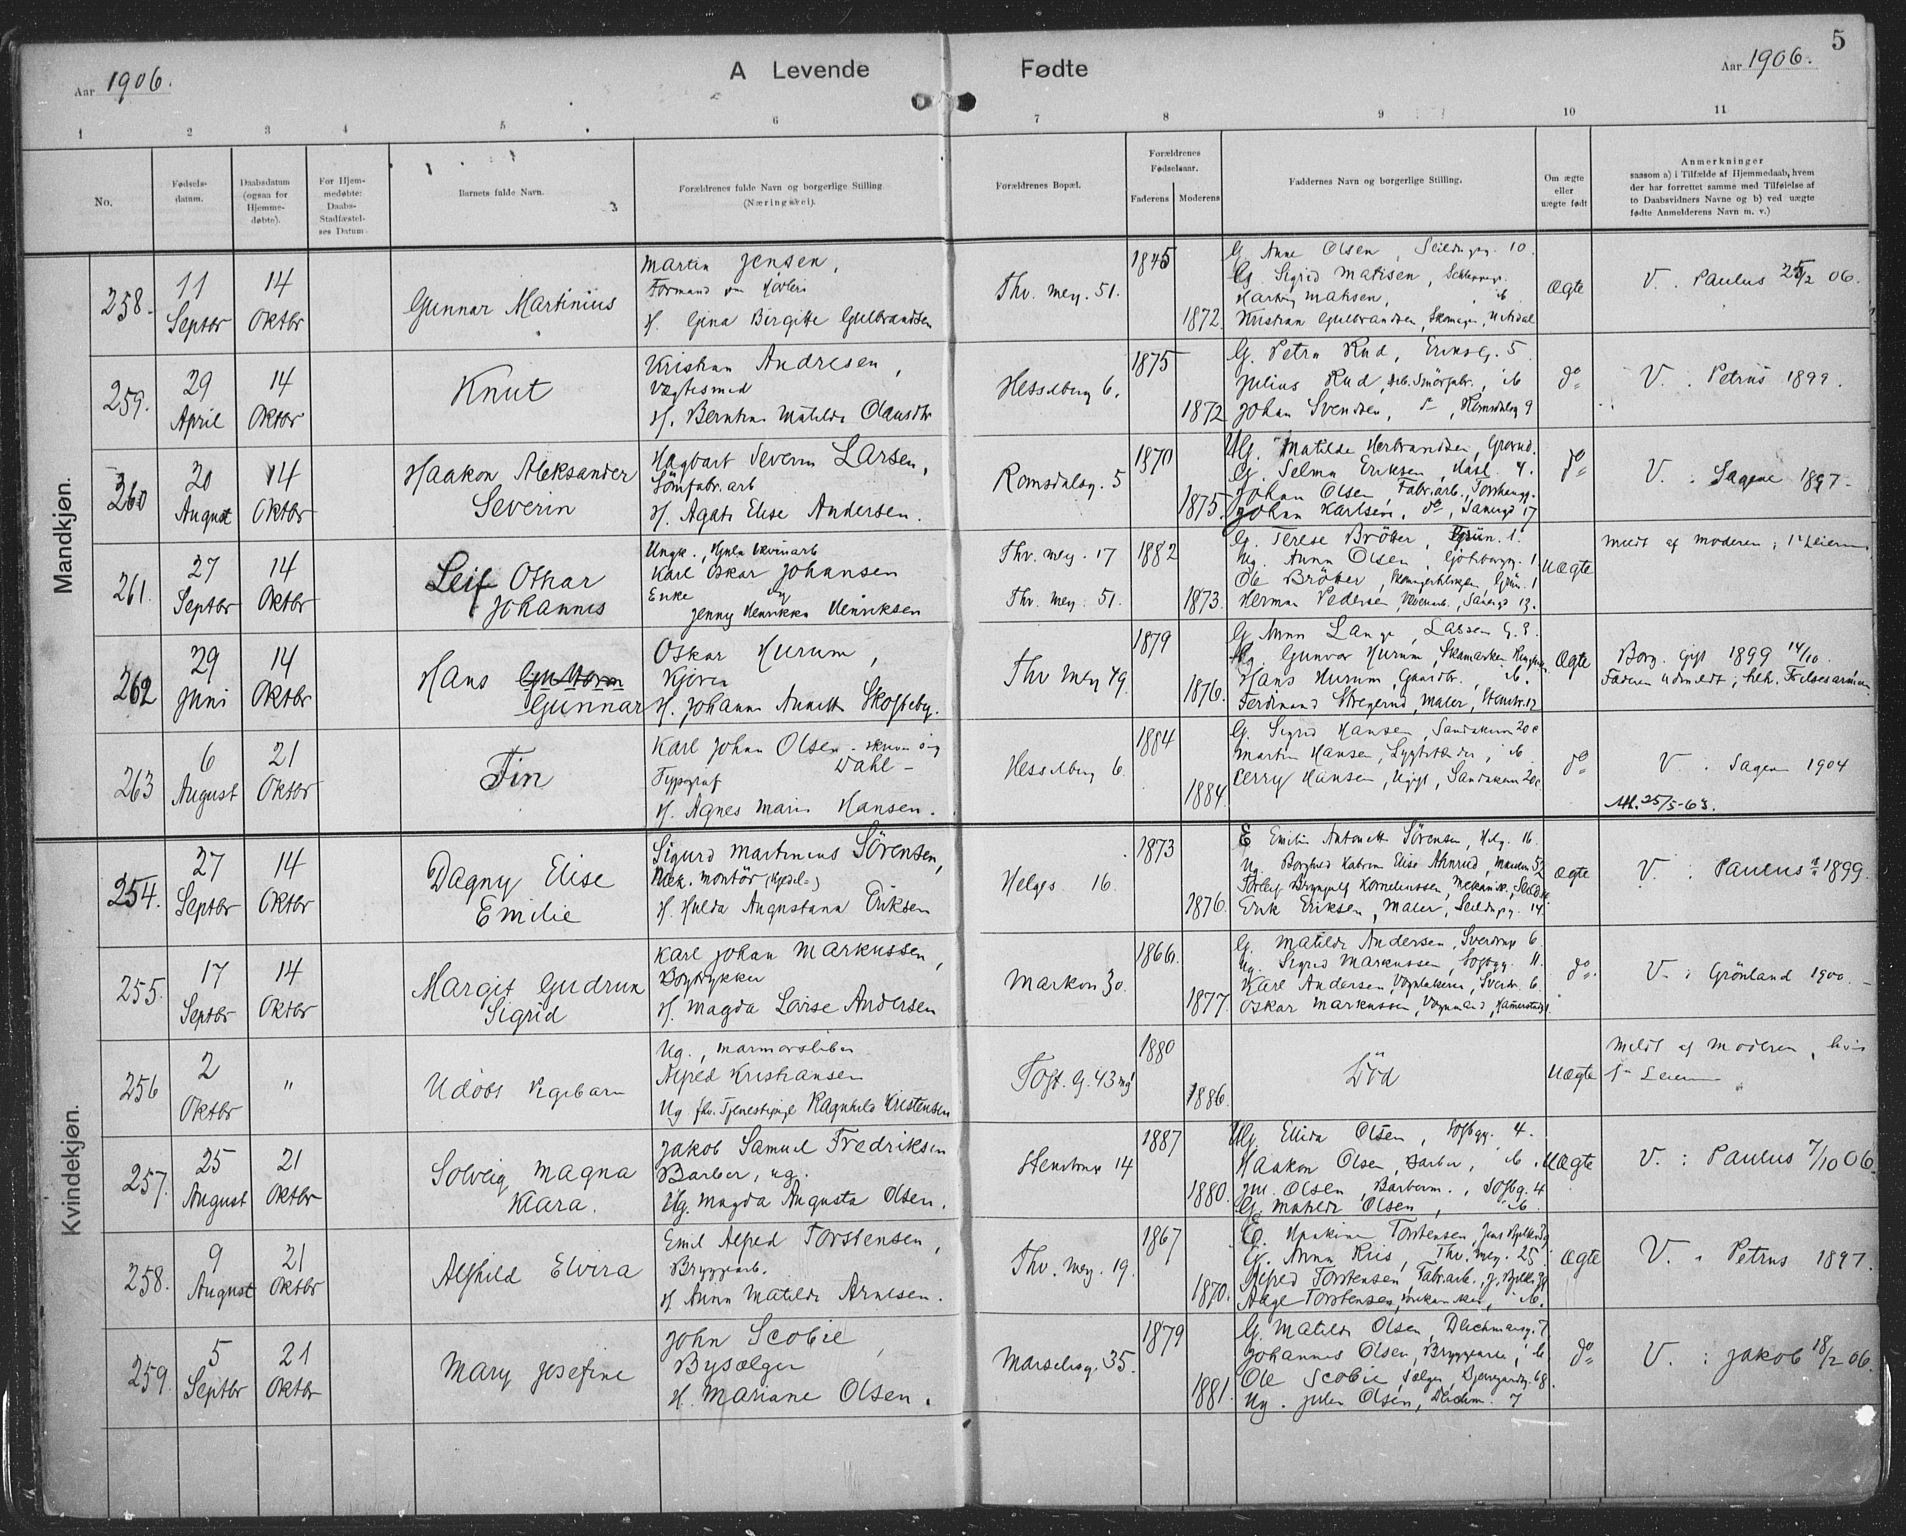 5
Aar 1906. A Levende Fødte Aar 1906.
1 2 3 4 5 6 7 8 9 10 11
No.
Fødsels-
datum.
Daabsdatum
(ogsaa for
Hjemme-
døbte).
For Hjem-
medøbte:
Daabs-
Stadfæstel-
ses Datum.
Barnets fulde Navn.
Forældrenes fulde Navn og borgerlige Stilling
(Næringsvei).
Forældrenes Bopæl.
Forældrenes
Fødselsaar.
Faderens Moderens
Faddernes Navn og borgerlige Stilling.
Om ægte
eller
uægte født
Anmerkninger
saasom a) i Tilfælde af Hjemmedaab, hvem
der har forrettet samme med Tilføielse af
to Daabsvidners Navne og b) ved uægte
fødte Anmelderens Navn m. v.)
Mandkjøn.
258.
11
Septbr
14
Oktbr
Gunnar Martinius
Martin Jensen,
Formand
H. Gina Birgitte Gulbrandsen
Thv. mey. 51.
1845
1872.
G. Anne Olsen, Seildugsg. 10
G. Sigrid Matisen,
Matisen,
Kristian Gulbrandsen, Skomager,
Ægte
V. Paulus 25/2 06.
259.
29
April
14
Oktbr
Knut
Kristian Andresen,
Vægtesmed
H. Berntine Matilde Olausdtr
Hesselberg 6.
1875
1872
G. Petra Rud, Eriksg. 5
Julius Rud, ib
Johan Svendsen, Romsdalsg 9
do
V. : Petrus 1899.
260
20
August
14
Oktbr
Haakon Aleksander
Severin
Hagbart Severin Larsen,
Sömfabr.arb
H. Agate Elise Andersen.
Romsdalsg. 5
1870
1875.
Ug. Matilde Herbrandsen,
G. Selma Eriksen, 4.
Johan Olsen, Fabr.arb.,
Johan Karlsen, do, 17
do
V. : Sagene 1897.
261.
27
Septbr
14
Oktbr
Leif Othar
Johannes
Ungk.,
Karl Oskar Johansen
Enke og
Jenny Henrikke Henriksen
Thv. mey. 17
Thv. mey. 51.
1882
1873.
G. Terese Bröter, Grün. 1.
Ug. Anna Olsen, Göteborgg. 1
Ole Bröter, Grün. 1
Herman Pedersen,
Uægte
Meldt af moderen, 1ste Leierm
262
29
Juni
14
Oktbr
Hans Guttorm
Gunnar
Oskar Hurum,
Kjörer
H. Johanne Annette Skofteby.
Thv mey 49.
1879
1876.
G. Anna Lange, Lassens G. 9.
Ug. Gunvor Hurum,
Hans Hurum, ib.
Ferdinand Maler,
Ægte
Borg. gift 1899 14/10.
Faderen udmeldt; Frelsesarmeen
263
6
August
21
Oktbr
Fin
Karl Johan Olsen - skriver sig
Dahl -
Typograf
H. Agnes Marie Hansen.
Hesselberg 6.
1884
1884.
G. Sigrid Hansen, 20c
Martin Hansen, ib
Perry Hansen, Ugift, 20c
do
V. Sagene 1904
25/5-63.
Kvindekjøn.
254.
27
Septbr
14
Oktbr
Dagny Elise
Emilie
Sigurd Martinius Sörensen,
Mek. montör (Kjedel-)
H. Hulda Augustana Eriksen
Helges 16.
1873
1876.
E Emilie Antonette Sörensen, Helg. 16
Ug. Borghild Katrine Elise
Brynjulf Kornelinssen,
Erik Eriksen, Maler, Seildugsg. 14.
Ægte
V. : Paulus 1899.
255.
17
Septbr
14
Oktbr
Margit Gudrun
Sigrid
Karl Johan Markussen,
Bogtrykker
H. Magda Lovise Andersen
Markvn 30.
1866.
1877.
G. Matilde Andersen, Sverdrups 6.
Ug. Sigrid Markussen, Tofteg. 11.
Karl Andersen, Sverdr. 6.
Oskar Markussen, Vognmand,
do.
V. : Grönland 1900.
256
2
Oktbr
"
Udöbt Pigebarn
Ug., Marmorsliber
Alfred Kristiansen
Ug fhv. Tjenestepige Ragnhild Kristensen
Toft. G. 43
1880
1886.
Död
Uægte
Meldt af moderen,
1ste Leierm
257.
25
August
21
Oktbr
Solveig Magna
Klara.
Jakob Samuel Fredriksen
Barber, ug.
Ug. Magda Augusta Olsen.
Stenstrups 14
1887
1880.
Ug. Ellida Olsen, Toftegg. 4.
Haakon Olsen, Barber, ib.
Olsen, Barberm., Toftg. 4
G. Matilde Olsen, ib.
Uægte
V. : Paulus 7/10 06.
258.
9
August
21
Oktbr
Alfhild Elvira
Emil Alfred Torstensen,
Bryggearb.
H Anna Matilde Arnesen.
Thv. mey. 19.
1867
1870.
E. Torstensen,
E. Anna Riis, Thv. mey. 25
Alfred Torstensen, Fabr.arb.,
Aage Torstensen, ib.
Ægte
V. Petrus 1897.
259.
5
Septbr
21
Oktbr
Mary Josefine
John Scobie,
Bysælger
H. Mariane Olsen.
Marselisg. 35.
1879
1881.
G. Matilde Olsen, Deichmansg. 7.
Johannes Olsen, Bryggearb, ib.
Ole Scobie, Sælger, 68.
Ug. Julie Olsen, Deichm. 7
do
V. : Jakob 18/2 06.